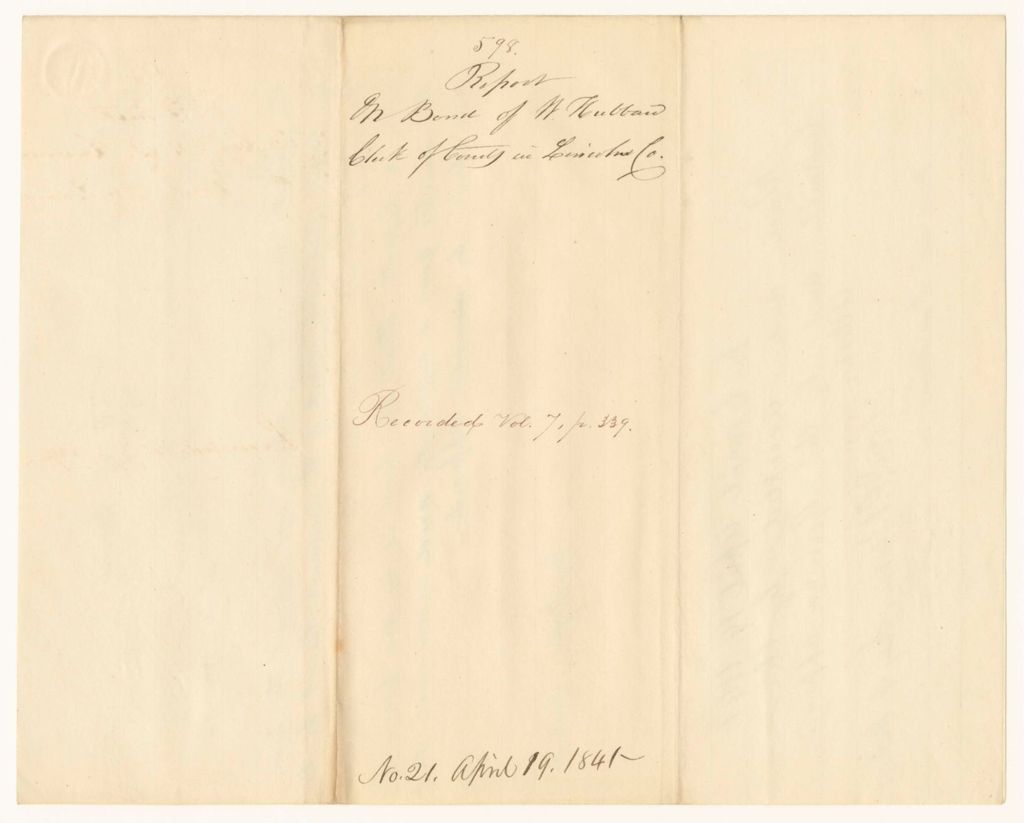 598.
Report
On Bond of W Hubbard
Clerk of Courts in Lincoln Co.
Recorded Vol. 7, p. 339.
No. 21. April 19. 1841